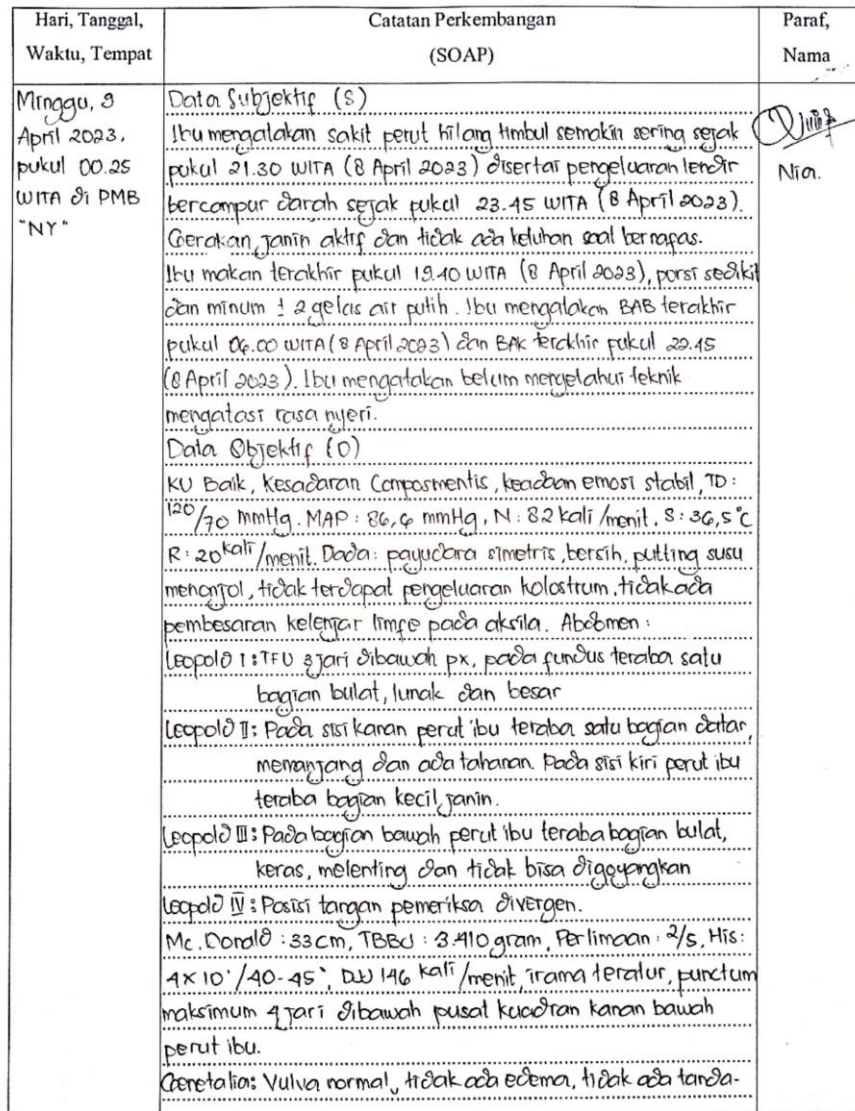 Hari, Tanggal,
Waktu, Tempat
Catatan Perkembangan
(SOAP)
Paraf,
Nama
Minggu, 9
April 2023,
pukul 00.25
WITA di PMB
"NY"
Data Subjektif (S)
Ibu mengatakan sakit perut hilang timbul semakin sering sejak
pukul 21.30 WITA (8 April 2023) disertai pengeluaran lendir
bercampur darah sejak pukul 23.45 WITA (8 April 2023).
Gerakan janin aktif dan tidak ada keluhan saat bernafas.
Ibu makan terakhir pukul 19.40 WITA (8 April 2023), porsi sedikit
dan minum ± 2 gelas air putih. Ibu mengatakan BAB terakhir
pukul 06.00 WITA (8 April 2023) dan BAK terakhir pukul 22.45
(8 April 2023). Ibu mengatakan belum mengetahui teknik
mengatasi rasa nyeri.
Data Objektif (O)
KU Baik, Kesadaran Composmentis, keadaan emosi stabil, TD:
120/70 mmHg. MAP: 86,6 mmHg, N: 82 kali/menit, S: 36,5°C
R: 20 kali/menit. Dada: payudara simetris, bersih, putting susu
menonjol, tidak terdapat pengeluaran kolostrum, tidak ada
pembesaran kelenjar limfe pada aksila. Abdomen:
Leopold I: TFU 3 jari dibawah px, pada fundus teraba satu
bagian bulat, lunak dan besar
Leopold II: Pada sisi kanan perut ibu teraba satu bagian datar,
memanjang dan ada tahanan. Pada sisi kiri perut ibu
teraba bagian kecil janin.
Leopold III: Pada bagian bawah perut ibu teraba bagian bulat,
keras, melenting dan tidak bisa digoyangkan
Leopold IV: Posisi tangan pemeriksa divergen.
Mc. Donald: 33 cm, TBBJ: 3.410 gram, Perlimaan: 2/5, His:
4x10'/40-45", DJJ 146 kali/menit, irama teratur, punctum
maksimum 4 jari dibawah pusat kuadran kanan bawah
perut ibu.
Genetalia: Vulva normal, tidak ada edema, tidak ada tanda-
Nia.